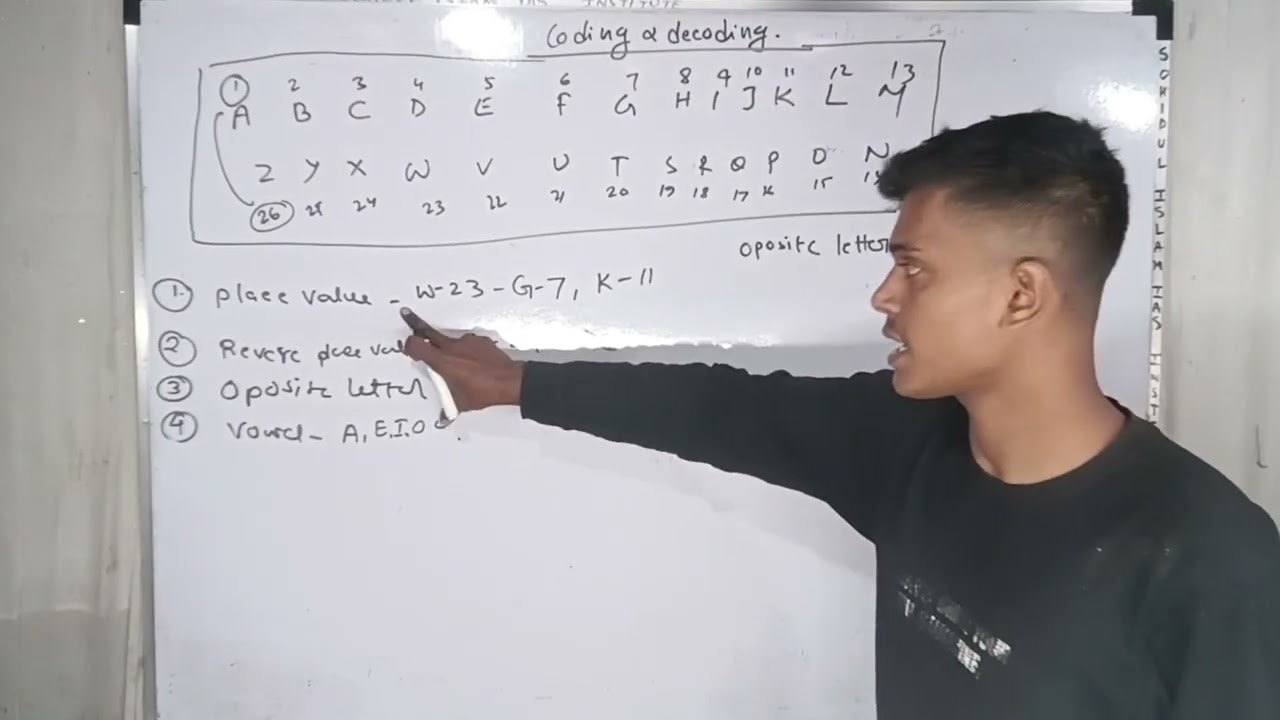 INSTITUTE
Coding & decoding.
1 2 3 4 5 6 7 8 9 10 11 12 13
A B C D E F G H I J K L M
Z Y X W V U T S R Q P O N
26 25 24 23 22 21 20 19 18 17 16 15
oposite letter
① place value - W-23-G-7, K-11
② Reverse place val
③ Oposite letter
④ Vowel - A, E, I, O
SOHIDUL ISLAM IAS INST